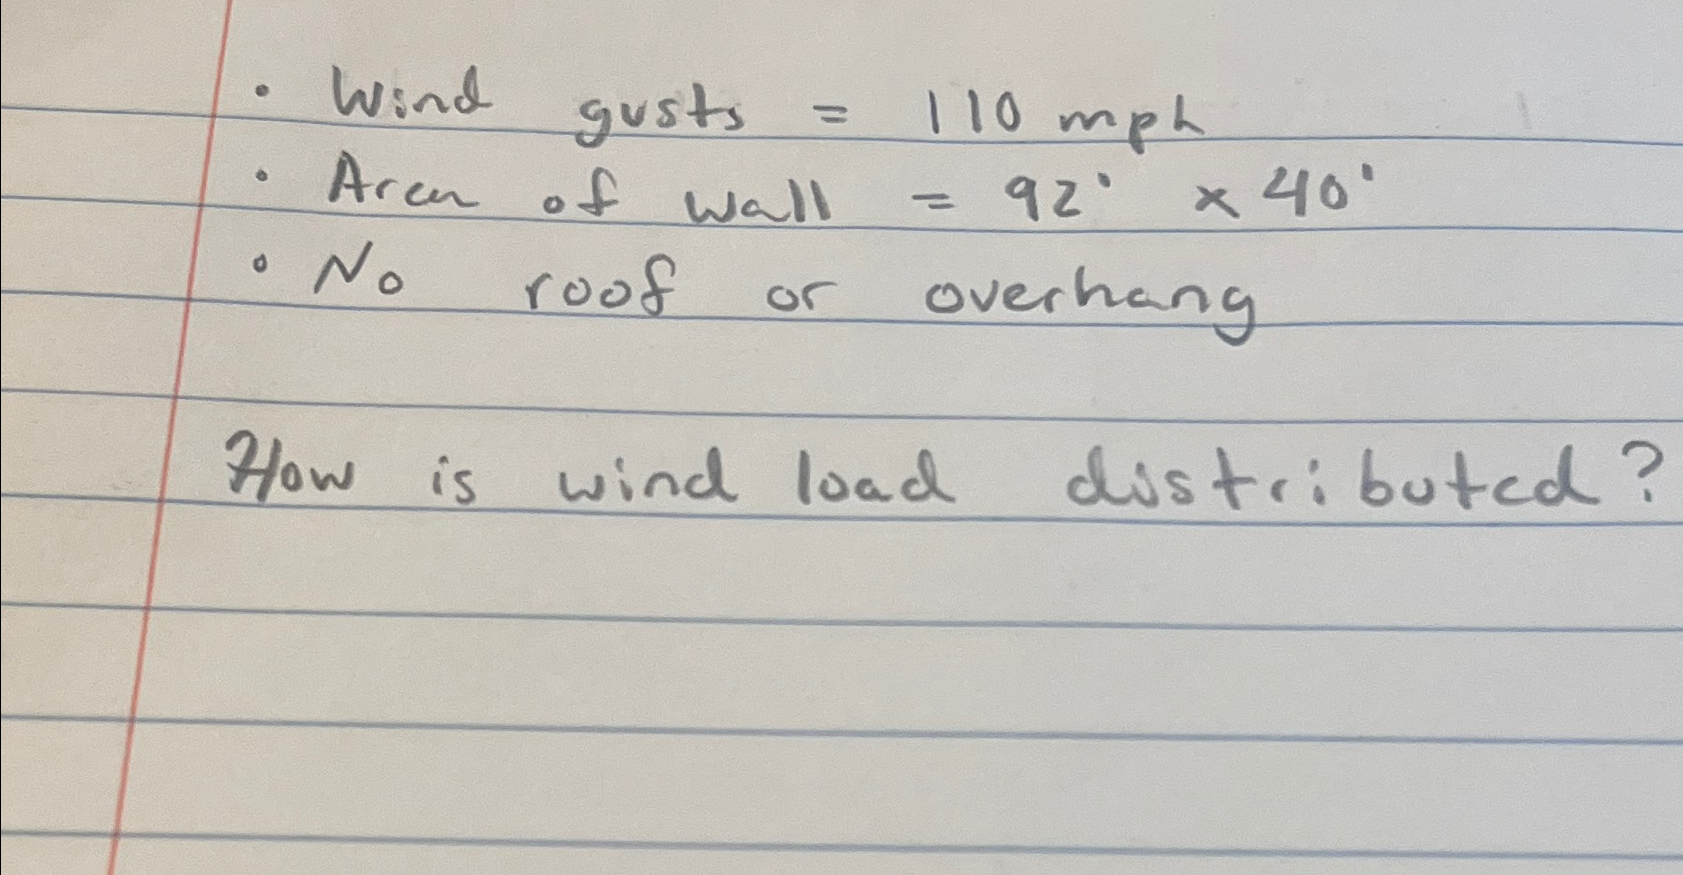 • Wind gusts = 110 mph
• Area of wall = 92' x 40'
• No roof or overhang
How is wind load distributed?